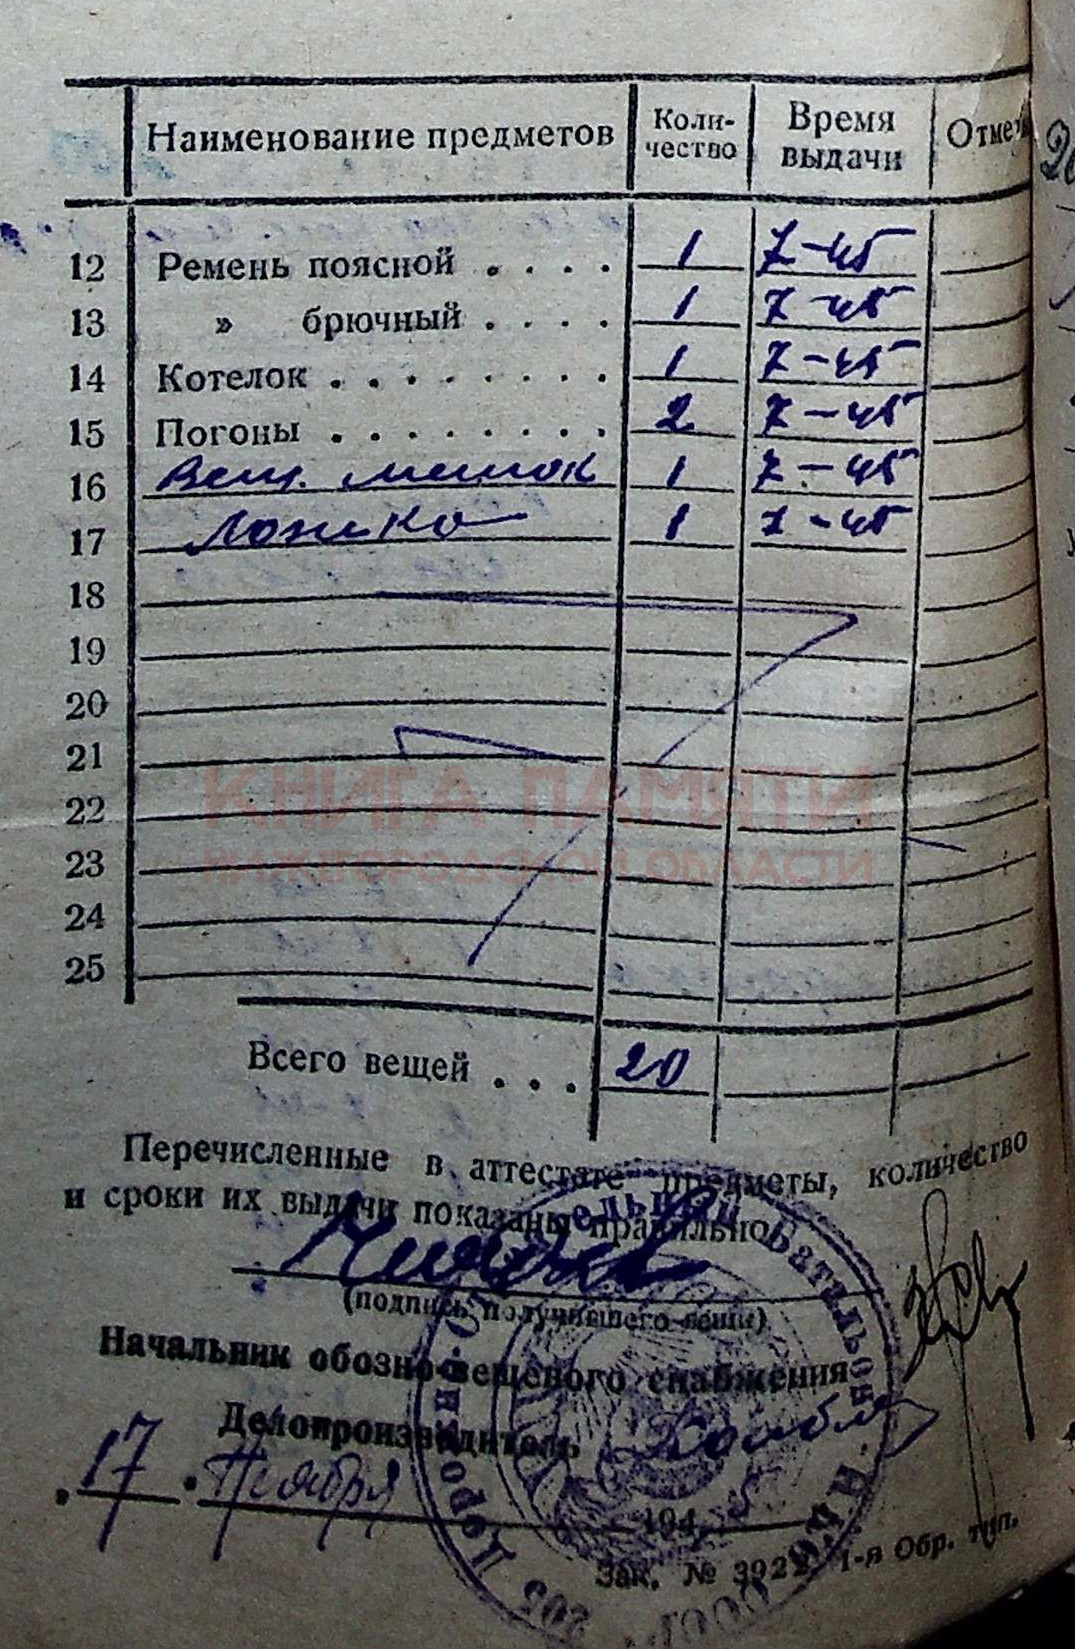 Наименование предметов Коли-чество Время выдачи Отме
12 Ремень поясной . . . . 1 7-45
13 » брючный . . . . 1 7-45
14 Котелок . . . . . . . . 1 7-45
15 Погоны . . . . . . . . 2 7-45
16 Вещ. мешок 1 7-45
17 Ложка 1 7-45
18
19
20
21
22
23
24
25
КНИГА ПАМЯТИ
НИЖЕГОРОДСКОЙ ОБЛАСТИ
Всего вещей . . . 20
Перечисленные в аттестате предметы, количество
и сроки их выдачи показаны правильно
(подпись получившего вещи)
Начальник обозно-вещевого снабжения
Делопроизводитель
17 Ноября 1945
Зак. № 3922 1-я Обр. тип.
батальон